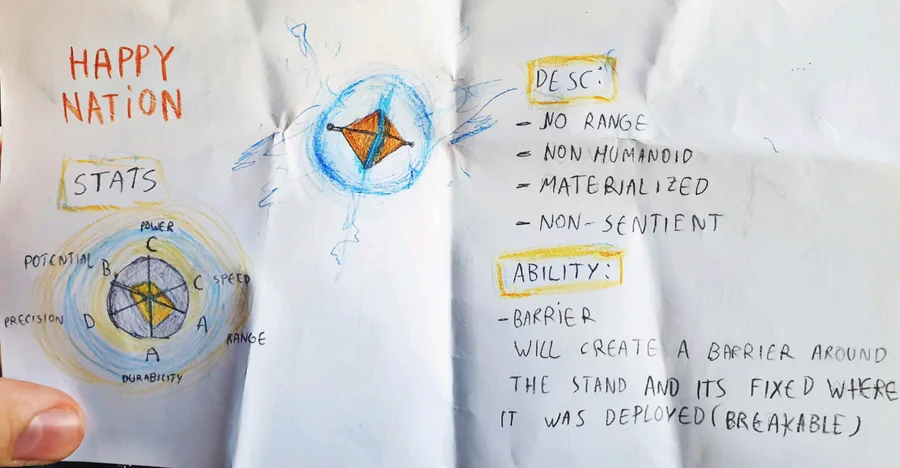 HAPPY
NATION
STATS
POWER
C
POTENTIAL
B
C SPEED
PRECISION D
A
RANGE
A
DURABILITY
DESC:
- NO RANGE
- NON HUMANOID
- MATERIALIZED
- NON-SENTIENT
ABILITY:
- BARRIER
WILL CREATE A BARRIER AROUND
THE STAND AND ITS FIXED WHERE
IT WAS DEPLOYED (BREAKABLE)